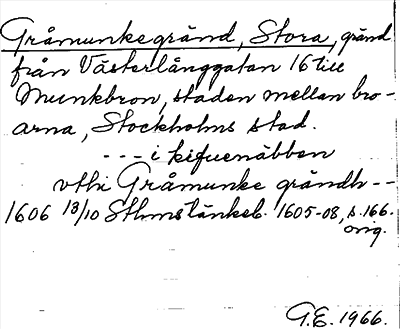 Gråmunkegränd, Stora, gränd
från Västerlånggatan 16 till
Munkbron, staden mellan bro-
arna, Stockholms stad.
--- i kifuenäbben
vthi Gråmunke grändh --
1606 13/10 Sthms tänkeb. 1605-08, s. 166.
orig.
G.E. 1966.